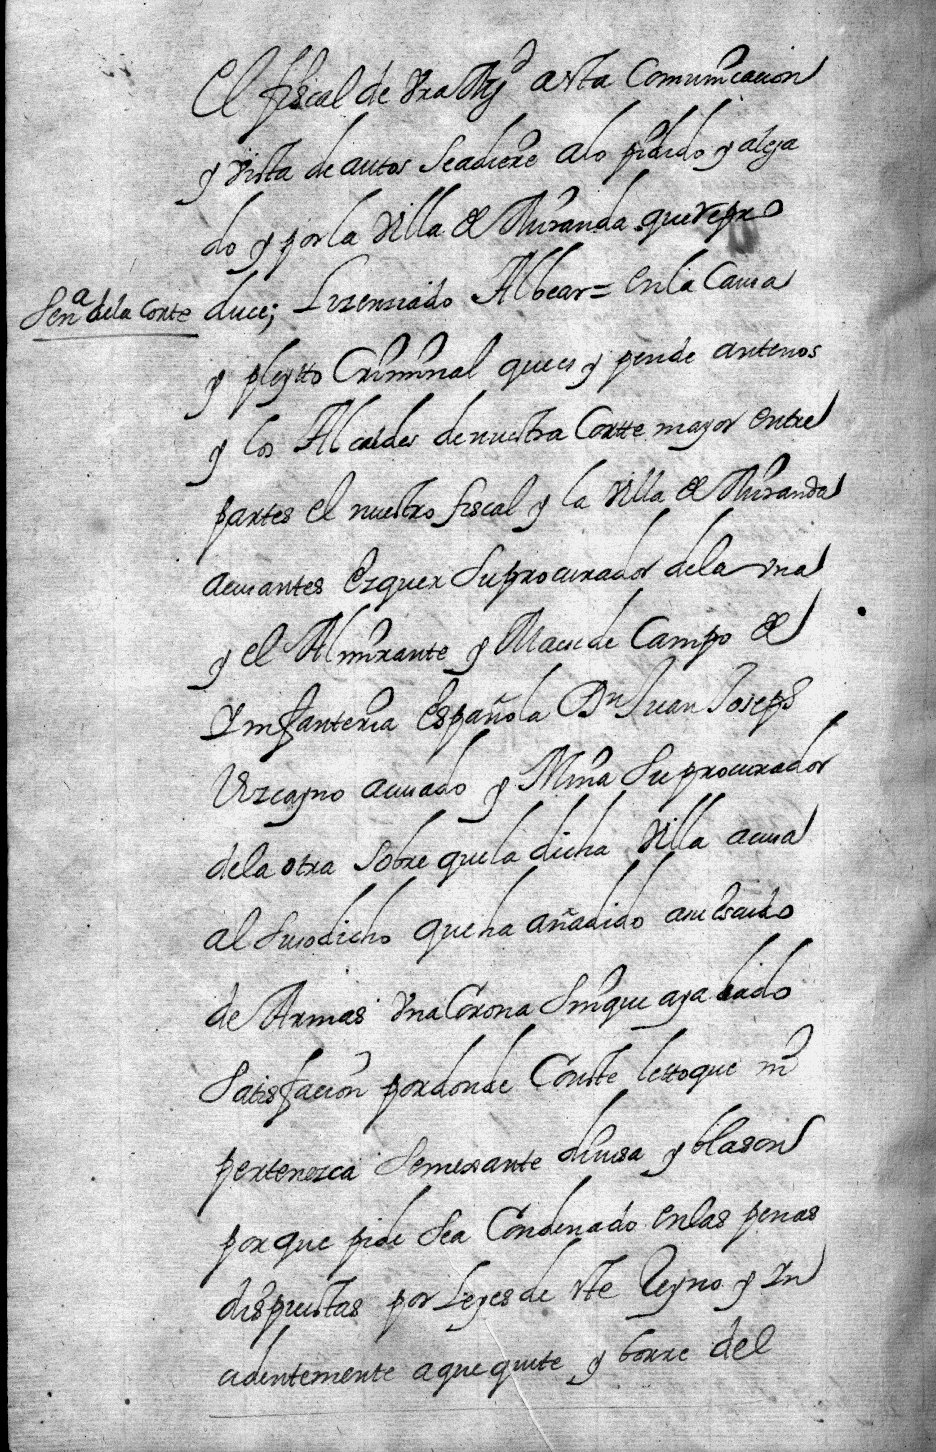 El fiscal de Vra Mgd a esta Comunicacion
y vista de autos se adiere a lo pidido y alega
do y por la Villa de Miranda que repro
Sena de la Corte
duce; Lizenziado Albear = En la Causa
y pleytto Criminal que es y pende antenos
y los Alcaldes de nuestra Cortte mayor entre
partes el nuestro fiscal y la Villa de Miranda
acusantes Ezquer su procurador de la una
y el Almirante y Maese de Campo de
Ynfanteria Española Dn Juan Joseph
Vizcayno acusado y Mina su procurador
de la otra sobre que la dicha Villa acusa
al susodicho que ha añadido a su escudo
de Armas Vna Corona sin que aya dado
satisfacion por donde Conste le toque ni
pertenezca semexante divisa y blason
por que pide sea Condenado en las penas
dispuestas por Leyes de este Reyno y Yn
cidentemente a que quite y borre del